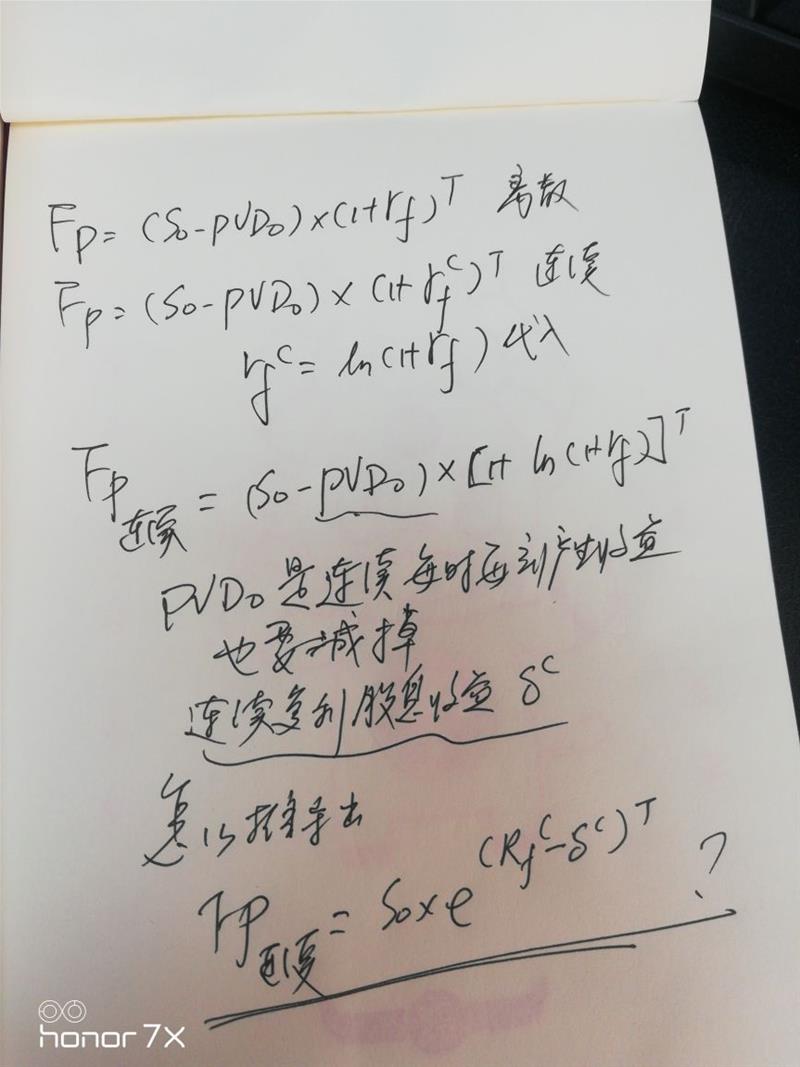 Fp = (S₀-PVD₀)×(1+rf)^T 离散
Fp = (S₀-PVD₀)×(1+rf^c)^T 连续
rf^c = ln(1+rf) 代入
Fp连续 = (S₀-PVD₀)×[1+ ln(1+rf)]^T
PVD₀是连续每时每刻产生收益
也要减掉
连续复利股息收益 δ^c
怎么推导出
Fp连续 = S₀×e^(Rf^c-δ^c)^T ?
honor 7X